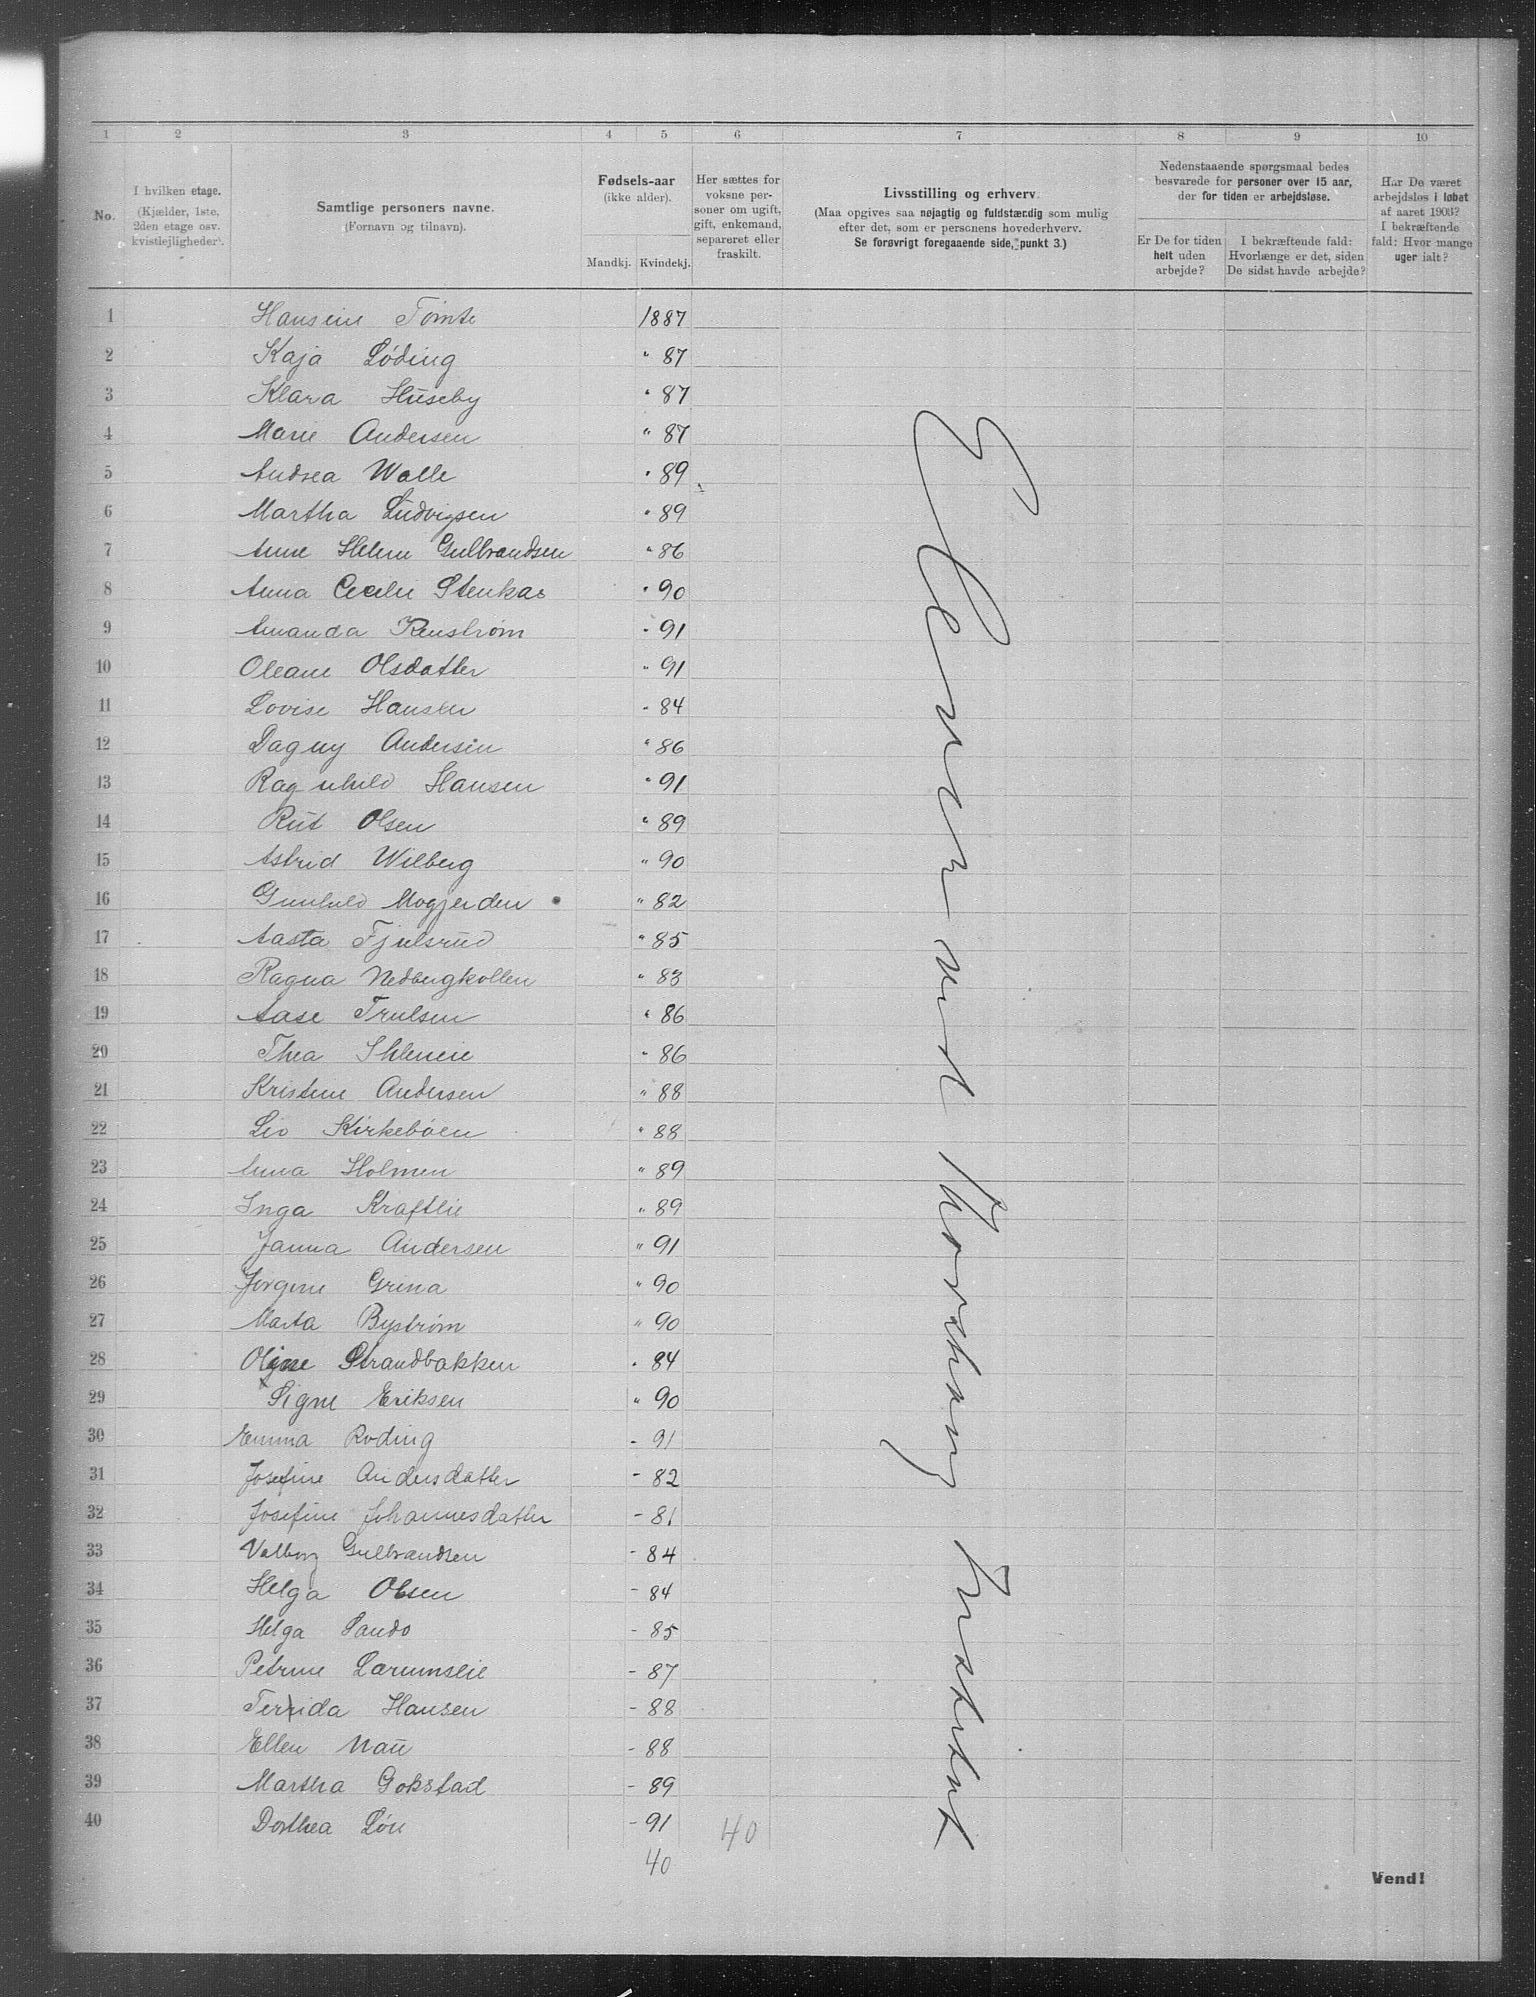 1 2 3 4 5 6 7 8 9 10
No.
I hvilken etage.
(Kjælder, 1ste,
2den etage osv.
kvistlejligheder).
Samtlige personers navne.
(Fornavn og tilnavn).
Fødsels-aar
(ikke alder).
Mandkj. Kvindekj.
Her sættes for
voksne per-
soner om ugift,
gift, enkemand,
separeret eller
fraskilt.
Livsstilling og erhverv.
(Maa opgives saa nøjagtig og fuldstændig som mulig
efter det, som er personens hovederhverv.
Se forøvrigt foregaaende side, punkt 3.)
Nedenstaaende spørgsmaal bedes
besvarede for personer over 15 aar,
der for tiden er arbejdsløse.
Er De for tiden
helt uden
arbejde?
I bekræftende fald:
Hvorlænge er det, siden
De sidst havde arbejde?
Har De været
arbejdsløs i løbet
af aaret 1903?
I bekræftende
fald: Hvor mange
uger ialt?
1 Hansine Tømte 1887
2 Kaja Løding " 87
3 Klara Huseby " 87
4 Marie Andersen " 87
5 Andrea Walle " 89
6 Martha Ludvigsen " 89
7 Anne Helene Gulbrandsen " 86
8 Anna Cecilie Stenkas " 90
9 Amanda Renstrøm " 91
10 Oleane Olsdatter " 91
11 Lovise Hansen " 84
12 Dagny Andersen " 86
13 Ragnhild Hansen " 91
14 Rut Olsen " 89
15 Astrid Wilberg " 90
16 Gunhild Mogjerden " 82
17 Aasta Fjulsrud " 85
18 Ragna Nedbergkollen " 83
19 Aase Trulsen " 86
20 Thea " 86
21 Kristine Andersen " 88
22 Liv Kirkebøen " 88
23 Anna Holmen " 89
24 Inga Kraftlie " 89
25 Janna Andersen " 91
26 Jørgine Grina " 90
27 Marta Byström " 90
28 Oline Strandbakken " 84
29 Signe Eriksen " 90
30 Emma Roding - 91
31 Josefine Andersdatter - 82
32 Josefine Johannesdatter - 81
33 Valborg Gulbrandsen - 84
34 Helga Olsen - 84
35 Helga Sando - 85
36 Petrine - 87
37 Hansen - 88
38 Ellen Nau - 88
39 Martha Gokstad - 89
40 Dorthea Løn - 91 40
40
Vend!